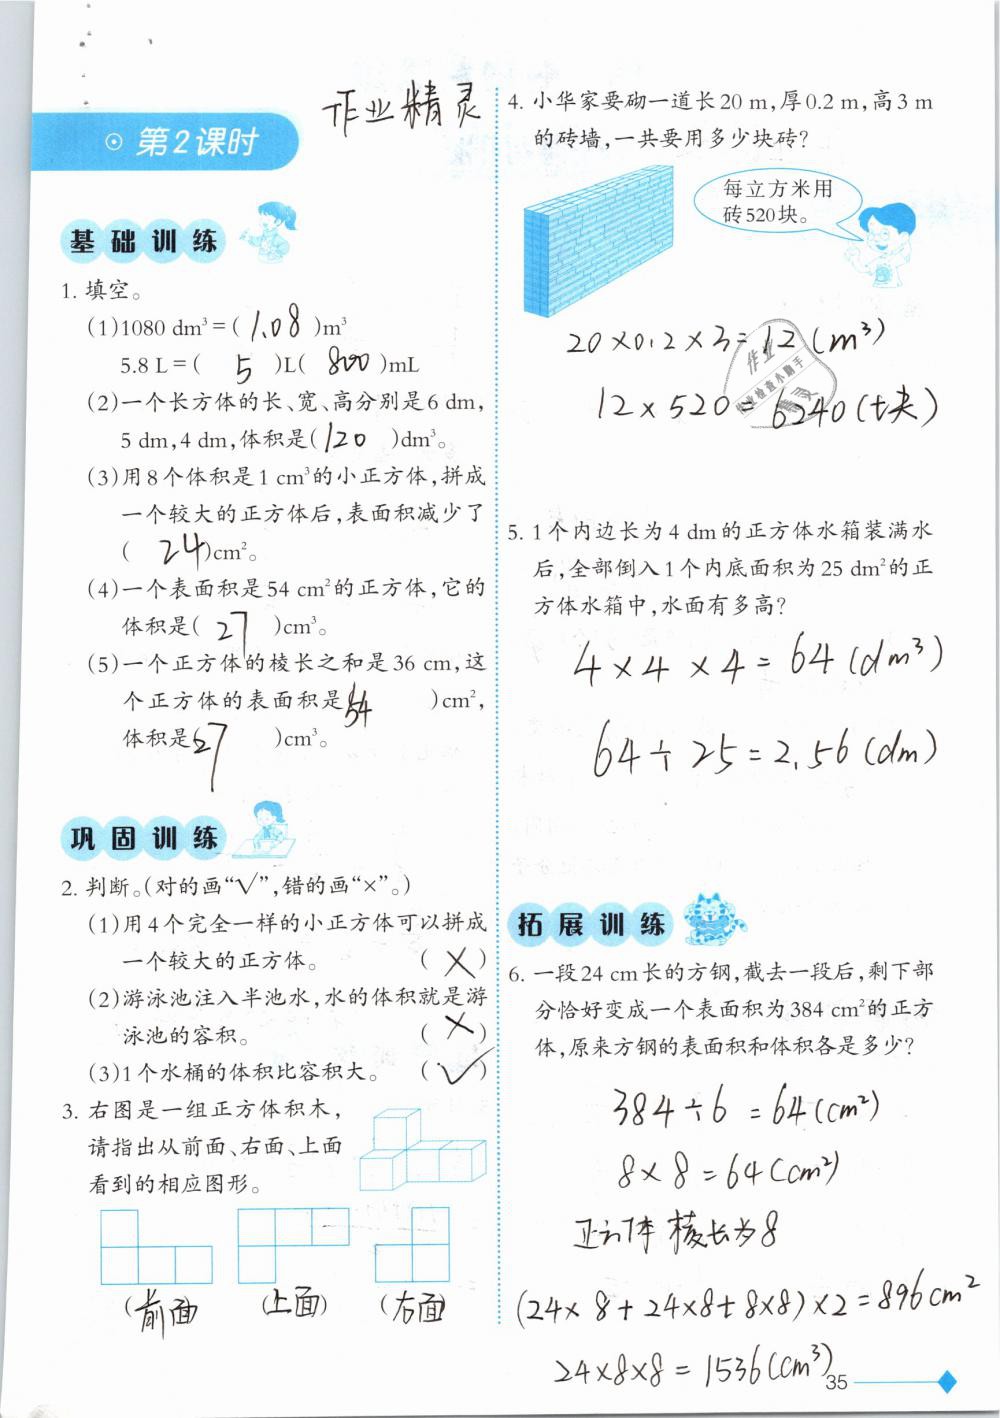 作业精灵
第2课时
基础训练
1. 填空。
(1)1080 dm³=( 1.08 )m³
5.8 L=( 5 )L( 800 )mL
(2)一个长方体的长、宽、高分别是6 dm,
5 dm,4 dm,体积是( 120 )dm³。
(3)用8个体积是1 cm³的小正方体,拼成
一个较大的正方体后,表面积减少了
( 24 )cm²。
(4)一个表面积是54 cm²的正方体,它的
体积是( 27 )cm³。
(5)一个正方体的棱长之和是36 cm,这
个正方体的表面积是( 54 )cm²,
体积是( 27 )cm³。
巩固训练
2. 判断。(对的画“√”,错的画“×”。)
(1)用4个完全一样的小正方体可以拼成
一个较大的正方体。 ( × )
(2)游泳池注入半池水,水的体积就是游
泳池的容积。 ( × )
(3)1个水桶的体积比容积大。 ( √ )
3. 右图是一组正方体积木,
请指出从前面、右面、上面
看到的相应图形。
(前面) (上面) (右面)
4. 小华家要砌一道长20 m,厚0.2 m,高3 m
的砖墙,一共要用多少块砖?
每立方米用
砖520块。
20×0.2×3=12(m³)
12×520=6240(块)
作业
作业检查小助手
精灵
5. 1个内边长为4 dm的正方体水箱装满水
后,全部倒入1个内底面积为25 dm²的正
方体水箱中,水面有多高?
4×4×4=64(dm³)
64÷25=2.56(dm)
拓展训练
6. 一段24 cm长的方钢,截去一段后,剩下部
分恰好变成一个表面积为384 cm²的正方
体,原来方钢的表面积和体积各是多少?
384÷6=64(cm²)
8×8=64(cm²)
正方体棱长为8
(24×8+24×8+8×8)×2=896cm²
24×8×8=1536(cm³)
35